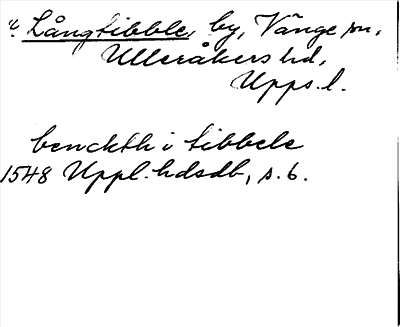 Långtibble, by, Vänge sn,
Ulleråkers hd,
Upps. l.
benckth i tibbele
1548 Uppl. hdsdb, s. 6.